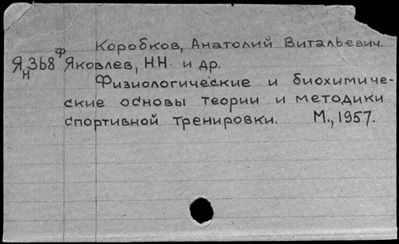 Коробков, Анатолий Витальевич.
Ф
Я368 Яковлев, Н.Н. и др.
Н
Физиологические и биохимиче-
ские основы теории и методики
спортивной тренировки. М., 1957.